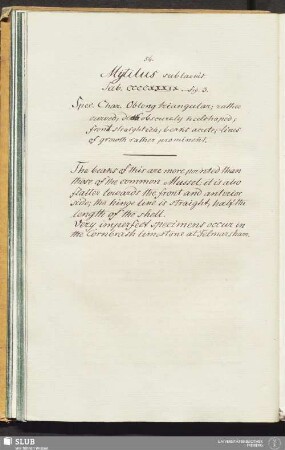 56.
Mytilus sublaevis
Tab. CCCCXXXIX fig. 3.
Spec. Char. Oblong triangular; rather
curved; obscurely wedshaped;
front straightish; beaks acute; lines
of growth rather prominent.
The beaks of this are more pointed than
those of the common Mussel, it is also
flatter towards the front and anterior
side; the hinge line is straight, half the
length of the shell.
Very imperfect specimens occur in
the Cornbrash limestone at Felmarsham.
SLUB